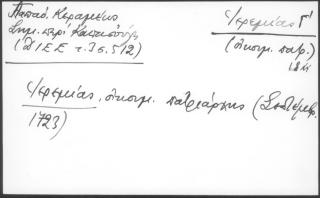 Παπαδ. Κεραμεύς
Σημ. περί Καυσοκαλύβ
(ΔΙΕΕ τ. 3 σ. 512)
Ἱερεμίας Γ΄
(οἰκουμ. πατρ.)
18 αι
Ἱερεμίας, οἰκουμ. πατριάρχης (Σεπτέμβρ.
1723)